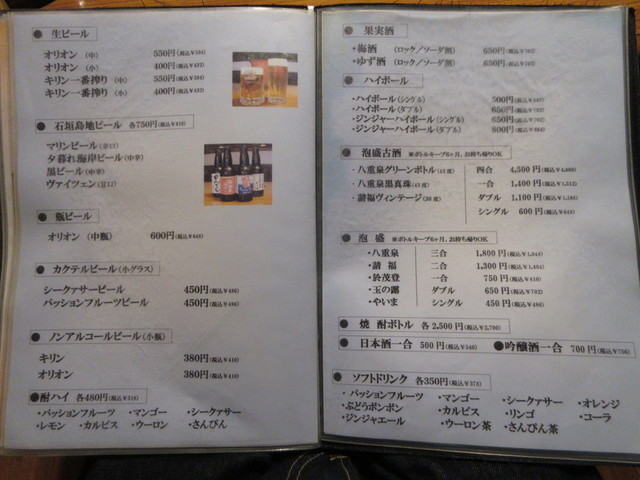 ● 生ビール
オリオン (中) 550円(税込¥594)
オリオン (小) 400円(税込¥432)
キリン一番搾り (中) 550円(税込¥594)
キリン一番搾り (小) 400円(税込¥432)
● 石垣島地ビール 各750円(税込¥810)
マリンビール(辛口)
夕暮れ海岸ビール(中辛)
黒ビール(中辛)
ヴァイツェン(甘口)
● 瓶ビール
オリオン (中瓶) 600円(税込¥648)
● カクテルビール(小グラス)
シークァサービール 450円(税込¥486)
パッションフルーツビール 450円(税込¥486)
● ノンアルコールビール(小瓶)
キリン 380円(税込¥410)
オリオン 380円(税込¥410)
●酎ハイ 各480円(税込¥518)
・パッションフルーツ ・マンゴー ・シークァサー
・レモン ・カルピス ・ウーロン ・さんぴん
● 果実酒
・梅酒 (ロック/ソーダ割) 650円(税込¥702)
・ゆず酒 (ロック/ソーダ割) 650円(税込¥702)
● ハイボール
・ハイボール(シングル) 500円(税込¥540)
・ハイボール(ダブル) 650円(税込¥702)
・ジンジャーハイボール(シングル) 650円(税込¥702)
・ジンジャーハイボール(ダブル) 800円(税込¥864)
● 泡盛古酒 ※ボトルキープ6ヶ月、お持ち帰りOK
・八重泉グリーンボトル(43度) 四合 4,500円(税込¥4,860)
・八重泉黒真珠(43度) 一合 1,400円(税込¥1,512)
・請福ヴィンテージ(30度) ダブル 1,100円(税込¥1,188)
シングル 600円(税込¥648)
● 泡 盛 ※ボトルキープ6ヶ月、お持ち帰りOK
・八重泉 三合 1,800円(税込¥1,944)
・請 福 二合 1,300円(税込¥1,404)
・於茂登 一合 750円(税込¥810)
・玉の露 ダブル 650円(税込¥702)
・やいま シングル 450円(税込¥486)
● 焼 酎ボトル 各2,500円(税込¥2,700)
● 日本酒一合 500円(税込¥540) ●吟醸酒一合 700円(税込¥756)
● ソフトドリンク 各350円(税込¥378)
・パッションフルーツ ・マンゴー ・シークァサー ・オレンジ
・ぶどうポンポン ・カルピス ・リンゴ ・コーラ
・ジンジャエール ・ウーロン茶 ・さんぴん茶